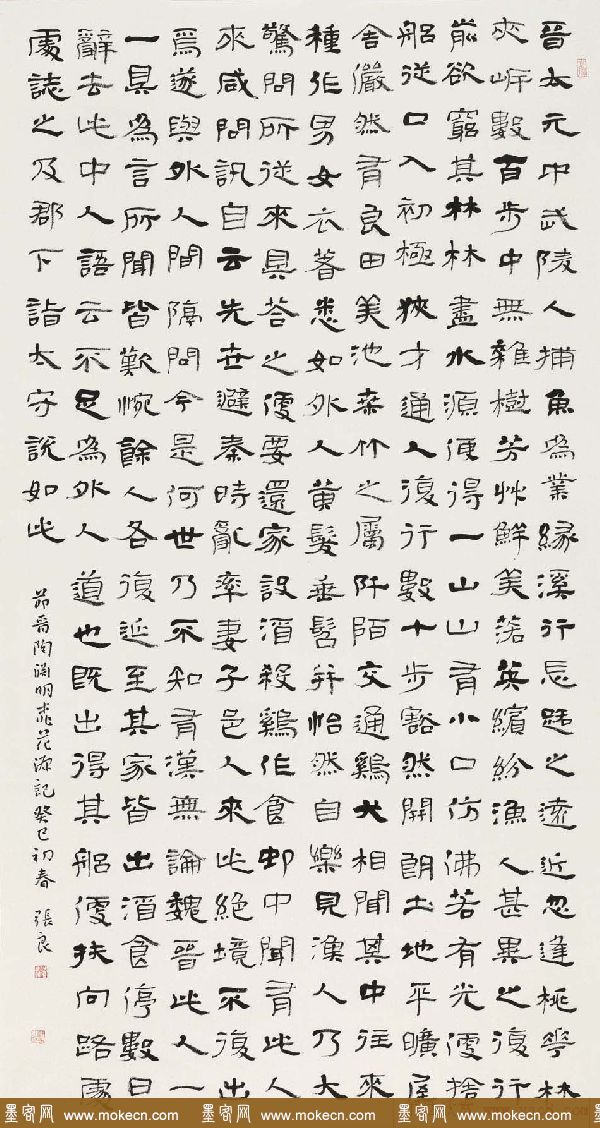 晉太元中武陵人捕魚為業緣溪行忘路之遠近忽逢桃花林
夾岸數百步中無雜樹芳艸鮮美落英繽紛漁人甚異之復行
前欲窮其林林盡水源便得一山山有小口仿佛若有光便捨
船從口入初極狹才通人復行數十步豁然開朗土地平曠屋
舍儼然有良田美池桑竹之屬阡陌交通雞犬相聞其中往來
種作男女衣著悉如外人黃髮垂髫并怡然自樂見漁人乃大
驚問所從來具答之便要還家設酒殺雞作食邨中聞有此人
來咸問訊自云先世避秦時亂率妻子邑人來此絕境不復出
焉遂與外人間隔問今是何世乃不知有漢無論魏晉此人一
一具為言所聞皆歎惋餘人各復延至其家皆出酒食停數日
辭去此中人語云不足為外人道也既出得其船便扶向路處
處誌之及郡下詣太守說如此
節晉陶淵明桃花源記癸巳初春 張良
墨客网 www.mokecn.com 墨客网 www.mokecn.com 墨客网 www.mokecn.com